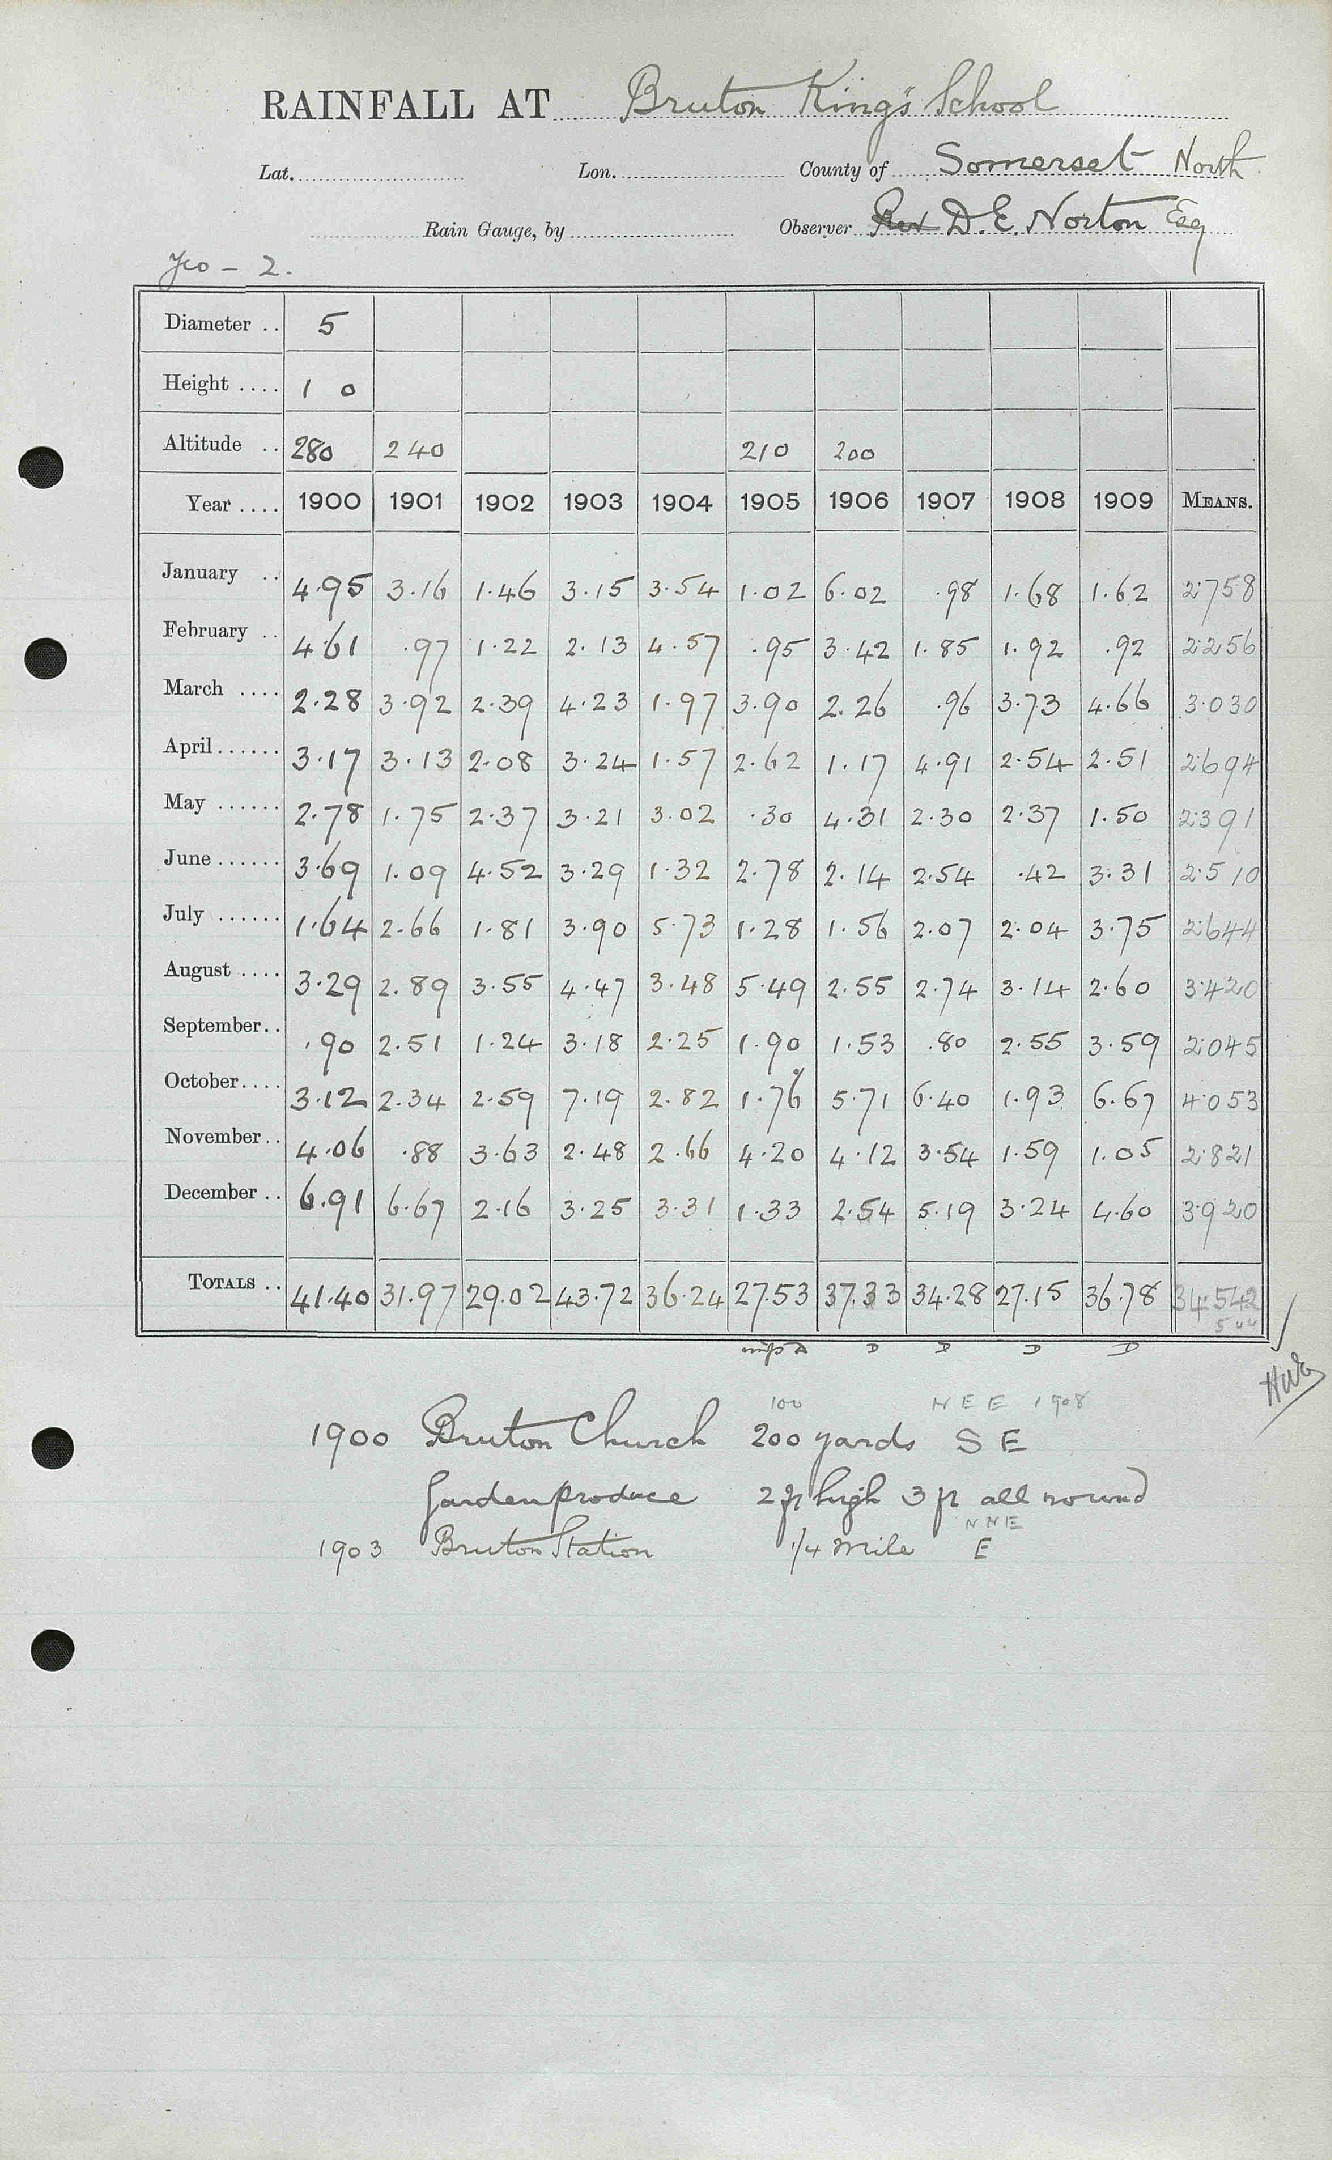 RAINFALL AT Bruton King's School
Lat. Lon. County of Somerset North
Rain Gauge, by Observer Rev D. E. Norton Esq
Yeo - 2.
Diameter .. 5
Height .... 1 0
Altitude .. 280 240 210 200
Year .... 1900 1901 1902 1903 1904 1905 1906 1907 1908 1909 MEANS.
January .. 4.95 3.16 1.46 3.15 3.54 1.02 6.02 .98 1.68 1.62 2.758
February .. 4.61 .97 1.22 2.13 4.57 .95 3.42 1.85 1.92 .92 2.256
March .... 2.28 3.92 2.39 4.23 1.97 3.90 2.26 .96 3.73 4.66 3.030
April...... 3.17 3.13 2.08 3.24 1.57 2.62 1.17 4.91 2.54 2.51 2.694
May ...... 2.78 1.75 2.37 3.21 3.02 .30 4.31 2.30 2.37 1.50 2.391
June ...... 3.69 1.09 4.52 3.29 1.32 2.78 2.14 2.54 .42 3.31 2.510
July ...... 1.64 2.66 1.81 3.90 5.73 1.28 1.56 2.07 2.04 3.75 2.644
August .... 3.29 2.89 3.55 4.47 3.48 5.49 2.55 2.74 3.14 2.60 3.420
September.. .90 2.51 1.24 3.18 2.25 1.90 1.53 .80 2.55 3.59 2.045
October.... 3.12 2.34 2.59 7.19 2.82 1.76 5.71 6.40 1.93 6.67 4.053
November.. 4.06 .88 3.63 2.48 2.66 4.20 4.12 3.54 1.59 1.05 2.821
December .. 6.91 6.67 2.16 3.25 3.31 1.33 2.54 5.19 3.24 4.60 3.920
TOTALS .. 41.40 31.97 29.02 43.72 36.24 27.53 37.33 34.28 27.15 36.78 34.542
D D D D
100 NEE 1908
1900 Bruton Church 200 yards S E
Garden produce 2 ft high 3 ft all round
NNE
1903 Bruton Station 1/4 mile E